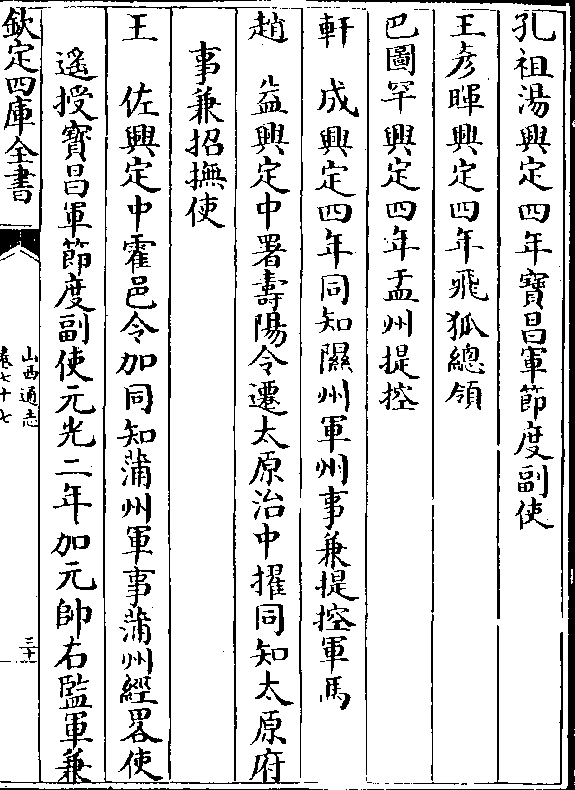 孔祖湯興定四年寶昌軍節度副使
王彥暉興定四年飛狐總領
巴圖罕興定四年盂州提控
軒　成興定四年同知隰州軍州事兼提控軍馬
趙　益興定中署壽陽令遷太原治中擢同知太原府
事兼招撫使
王　佐興定中霍邑令加同知蒲州軍事蒲州經畧使
遙授寶昌軍節度副使元光二年加元帥右監軍兼
欽定四庫全書
山西通志
卷七十七